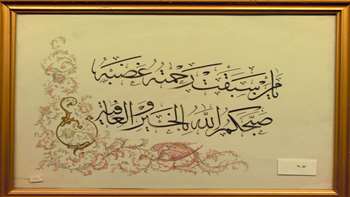 يا من سبقت رحمته غضبه
صبحكم الله بالخير والعافية